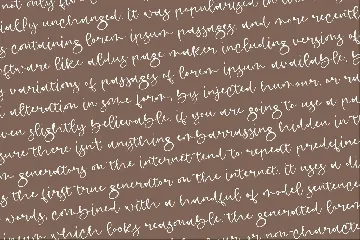 not only five
ially unchanged. it was popularised in
s containing lorem ipsum passages and more recently
ftware like aldus page maker including versions of
y variations of passages of lorem ipsum available. b
alteration in some form, by injected humour, or ra
ven slightly believable. if you are going to use a pa
sure there isn't anything embarrassing hidden in t
m generators on the internet tend to repeat predefine
s the first true generator on the internet. it uses a d
words combined with a handful of model sentenc
ipsum which looks reasonable. the generated lorem
non-charact